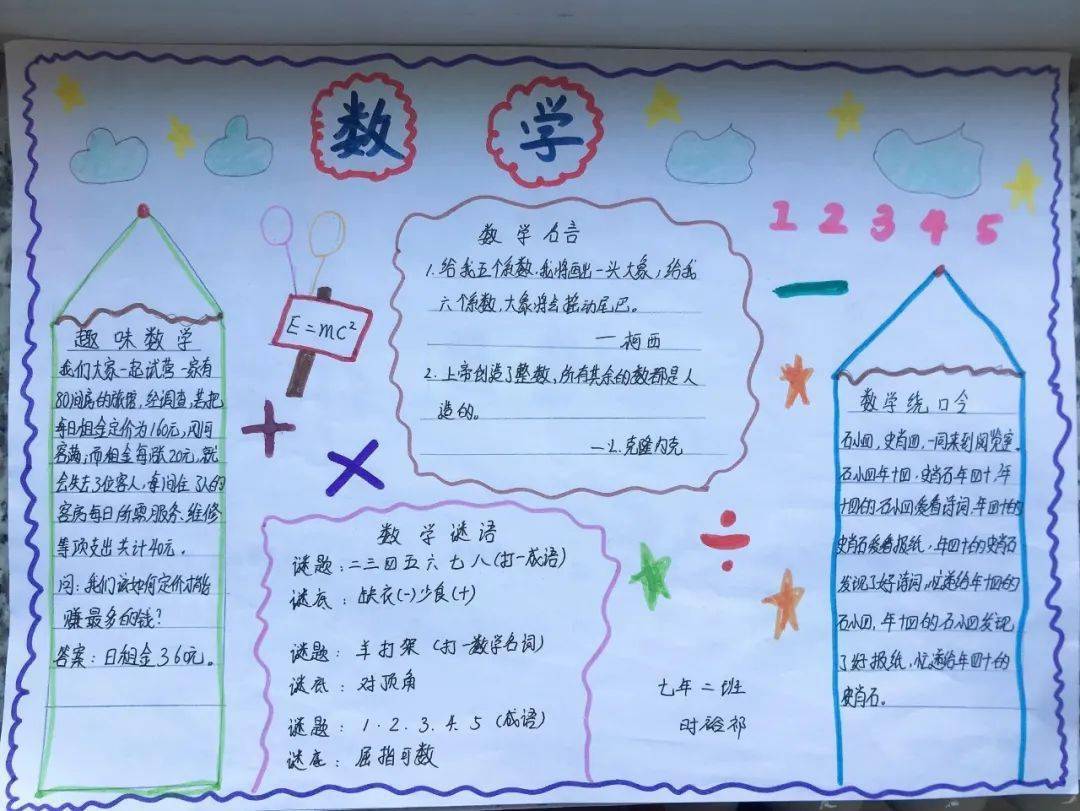 数 学
趣味数学
我们大家一起试营一家有
80间房的旅馆,经调查,若把
每日租金定价为160元,则可
客满;而租金每涨20元,就
会失去3位客人,每间住了人的
客房每日所需服务、维修
等项支出共计40元。
问:我们该如何定价才能
赚最多的钱?
答案:日租金360元。
E=mc²
数学名言
1.给我五个系数,我将画出一头大象;给我
六个系数,大象将会摇动尾巴。
—柯西
2.上帝创造了整数,所有其余的数都是人
造的。
—L.克隆内克
数学谜语
谜题:二三四五六七八(打一成语)
谜底:缺衣(一)少食(十)
谜题:羊打架(打一数学名词)
谜底:对顶角
谜题:1.2.3.4.5(成语)
谜底:屈指可数
1 2 3 4 5
数学绕口令
石小四,史肖四,一同来到阅览室。
石小四年十四,史肖石年四十,年
十四的石小四爱看诗词,年四十的
史肖石爱看报纸,年四十的史肖石
发现了好诗词,忙递给年十四的
石小四,年十四的石小四发现
了好报纸,忙递给年四十的
史肖石。
七年二班